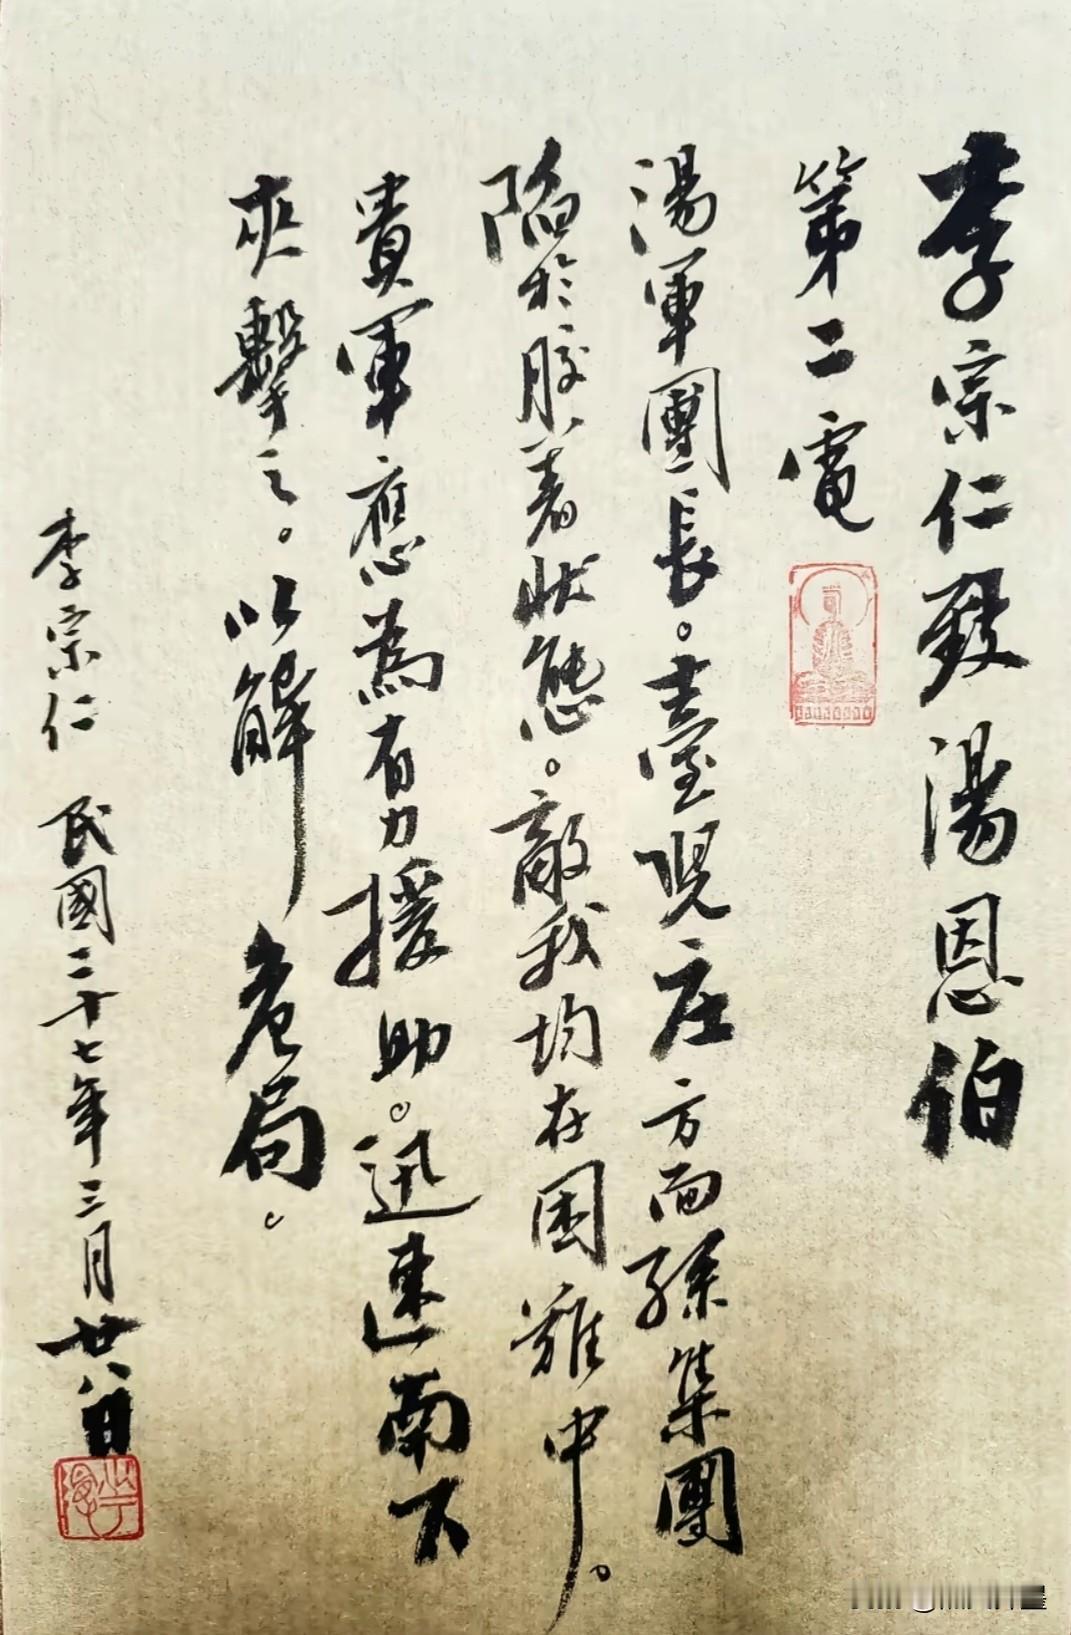 李宗仁致湯恩伯
第二電
湯軍團長。臺兒庄方面孫集團
陷於膠着状態。敵我均在困難中。
貴軍應為有力援助。迅速南下
夾擊之。以解危局。
李宗仁 民國二十七年三月廿八日